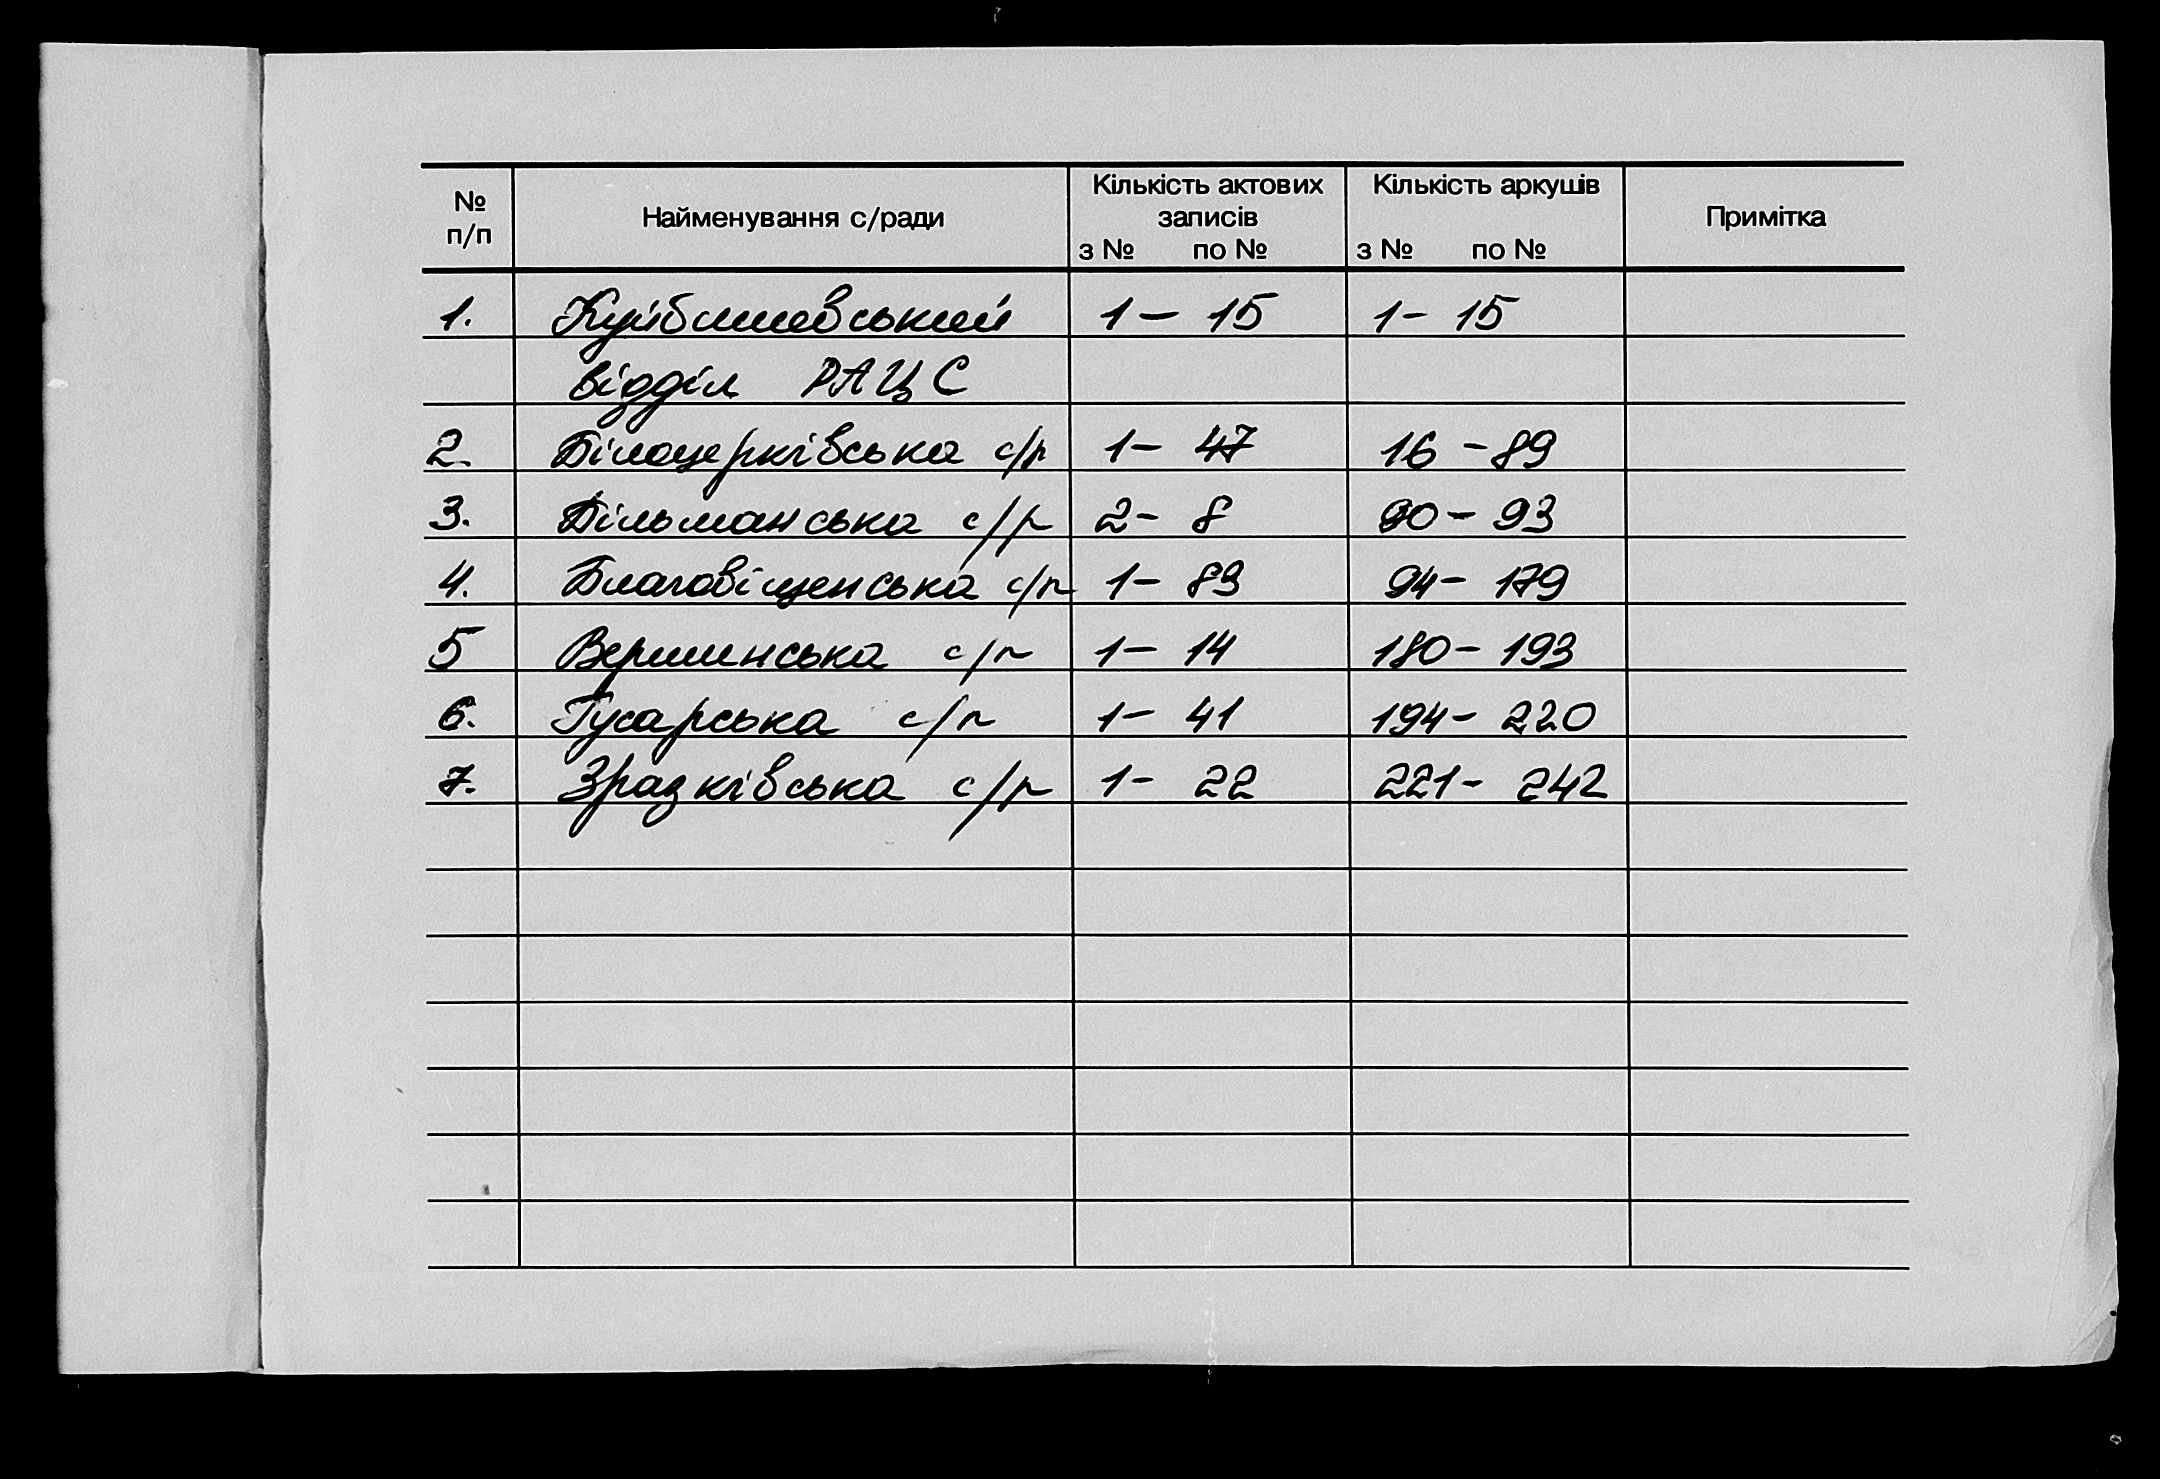 № п/п Найменування с/ради Кількість актових записів з № по № Кількість аркушів з № по № Примітка
1. Куйбишевський 1 – 15 1 – 15
відділ РАЦС
2. Білоцерківська с/р 1 – 47 16 – 89
3. Більманська с/р 2 – 8 90 – 93
4. Благовіщенська с/р 1 – 83 94 – 179
5 Вершинська с/р 1 – 14 180 – 193
6. Гусарська с/р 1 – 41 194 – 220
7. Зразківська с/р 1 – 22 221 – 242